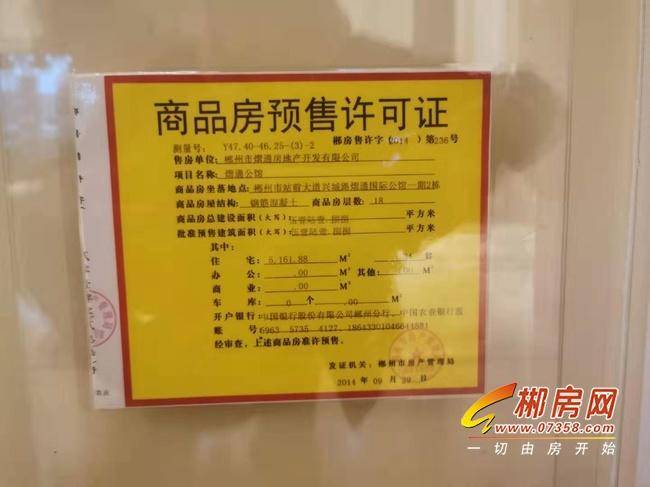 商品房预售许可证
郴房售许字（2014）第236号
测量号：Y47.40-46.25-(3)-2
售房单位：郴州市熠通房地产开发有限公司
项目名称：熠通公馆
商品房坐落地点：郴州市站前大道兴城路熠通国际公馆一期2栋
商品房屋结构：钢筋混凝土 商品房层数：18
商品房总建设面积（大写） 平方米
批准预售建筑面积（大写） 平方米
其中：
住 宅：5,161.88 M²
办 公：.00 M² 其他：.00 M²
商 业：.00 M²
车 库：0 个 .00 M²
开户银行：中国银行股份有限公司郴州分行、中国农业银行股
账 号：6963 5735 4127、18643301046644881
经审查，上述商品房准许预售。
发证机关：郴州市房产管理局
2014 年 09 月 29 日
郴房网
www.07358.com
一切由房开始